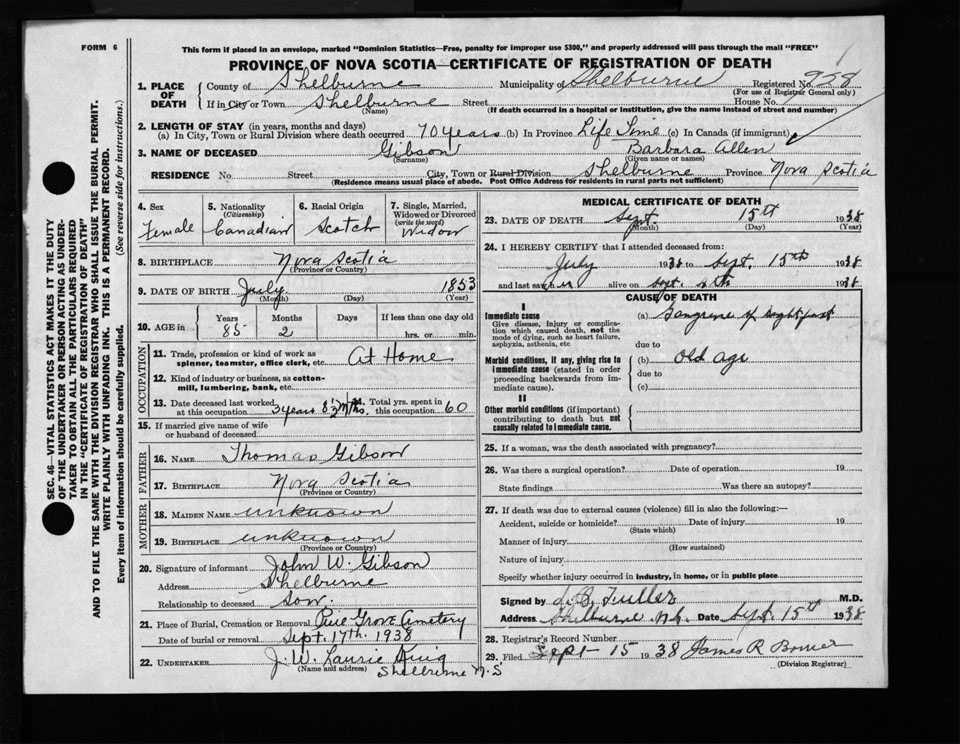 FORM 6
This form if placed in an envelope, marked "Dominion Statistics—Free, penalty for improper use $300," and properly addressed will pass through the mail "FREE"
PROVINCE OF NOVA SCOTIA—CERTIFICATE OF REGISTRATION OF DEATH
1. PLACE OF DEATH County of Shelburne Municipality of Shelburne Registered No. 938
(For use of Registrar General only)
If in City or Town Shelburne Street House No.
(Name) (If death occurred in a hospital or institution, give the name instead of street and number)
2. LENGTH OF STAY (in years, months and days)
(a) In City, Town or Rural Division where death occurred 70 years (b) In Province Life Time (c) In Canada (if immigrant)
3. NAME OF DECEASED Gibson Barbara Allen
(Surname) (Given name or names)
RESIDENCE No. Street City, Town or Rural Division Shelburne Province Nova Scotia
(Residence means usual place of abode. Post Office Address for residents in rural parts not sufficient)
4. Sex Female
5. Nationality (Citizenship) Canadian
6. Racial Origin Scotch
7. Single, Married, Widowed or Divorced (write the word) Widow
8. BIRTHPLACE Nova Scotia
(Province or Country)
9. DATE OF BIRTH July 1853
(Month) (Day) (Year)
10. AGE in Years 85 Months 2 Days If less than one day old hrs. or min.
OCCUPATION
11. Trade, profession or kind of work as spinner, teamster, office clerk, etc. At Home
12. Kind of industry or business, as cotton-mill, lumbering, bank, etc.
13. Date deceased last worked at this occupation 3 years 8½ mths. 14. Total yrs. spent in this occupation 60
15. If married give name of wife or husband of deceased
FATHER
16. NAME Thomas Gibson
17. BIRTHPLACE Nova Scotia
(Province or Country)
MOTHER
18. MAIDEN NAME unknown
19. BIRTHPLACE unknown
(Province or Country)
20. Signature of informant John W. Gibson
Address Shelburne
Relationship to deceased son.
21. Place of Burial, Cremation or Removal Pine Grove Cemetery
Date of burial or removal Sept. 17th. 1938
22. UNDERTAKER J. W. Laurie King
(Name and address) Shelburne N.S
MEDICAL CERTIFICATE OF DEATH
23. DATE OF DEATH Sept. 15th 1938
(Month) (Day) (Year)
24. I HEREBY CERTIFY that I attended deceased from:
July 1938 to Sept. 15th 1938
and last saw her alive on Sept. 1938
CAUSE OF DEATH
I
Immediate cause
Give disease, injury or complication which caused death, not the mode of dying, such as heart failure, asphyxia, asthenia, etc
(a) Gangrene of right foot
due to
Morbid conditions, if any, giving rise to immediate cause (stated in order proceeding backwards from immediate cause).
(b) Old age
due to
(c)
II
Other morbid conditions (if important) contributing to death but not causally related to immediate cause.
25. If a woman, was the death associated with pregnancy?
26. Was there a surgical operation? Date of operation 19
State findings Was there an autopsy?
27. If death was due to external causes (violence) fill in also the following:—
Accident, suicide or homicide? Date of injury 19
(State which)
Manner of injury
(How sustained)
Nature of injury
Specify whether injury occurred in industry, in home, or in public place
Signed by L. B. Fuller M.D.
Address Shelburne N.S. Date Sept. 15th 1938
28. Registrar's Record Number
29. Filed Sept 15 1938 James R Bower
(Division Registrar)
SEC. 46—VITAL STATISTICS ACT MAKES IT THE DUTY
OF THE UNDERTAKER OR PERSON ACTING AS UNDER-
TAKER TO OBTAIN ALL THE PARTICULARS REQUIRED
IN THE "CERTIFICATE OF REGISTRATION OF DEATH"
AND TO FILE THE SAME WITH THE DIVISION REGISTRAR WHO SHALL ISSUE THE BURIAL PERMIT.
WRITE PLAINLY WITH UNFADING INK. THIS IS A PERMANENT RECORD.
Every item of information should be carefully supplied. (See reverse side for instructions.)